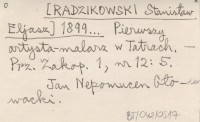 [RADZIKOWSKI Stanisław
Eljasz] 1899... Pierwszy
artysta-malarz w Tatrach. —
Prz. Zakop. 1, nr 12: 5.
Jan Nepomucen Gło-
wacki.